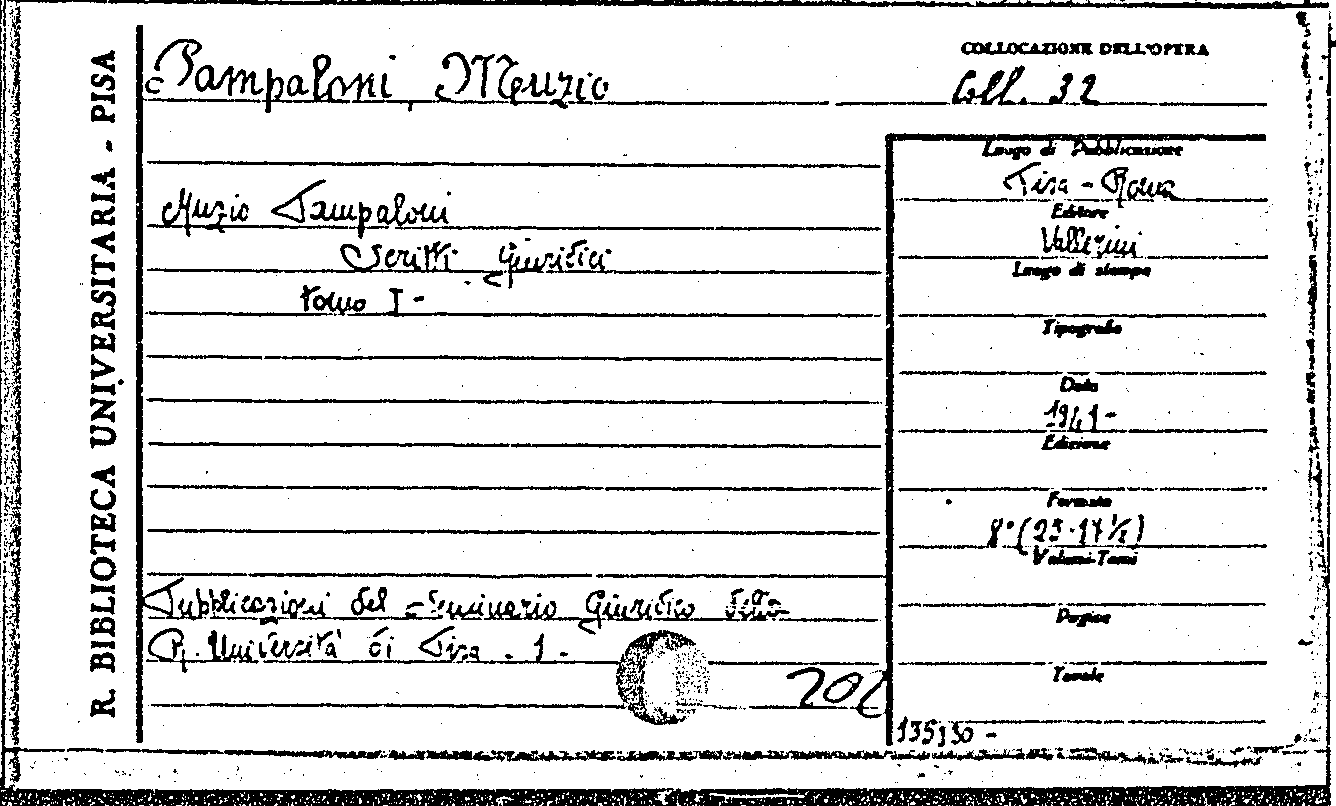 R. BIBLIOTECA UNIVERSITARIA - PISA
Pampaloni, Muzio
COLLOCAZIONE DELL'OPERA
Coll. 32
Muzio Pampaloni
Scritti Giuridici
tomo I -
Luogo di Pubblicazione
Pisa - Roma
Editore
Vallerini
Luogo di stampa
Tipografo
Data
1941 -
Edizione
Formato
8° (25·17½)
Volumi-Tomi
Pagine
Tavole
Pubblicazioni del Seminario Giuridico della
R. Università di Pisa - 1 -
135130 -